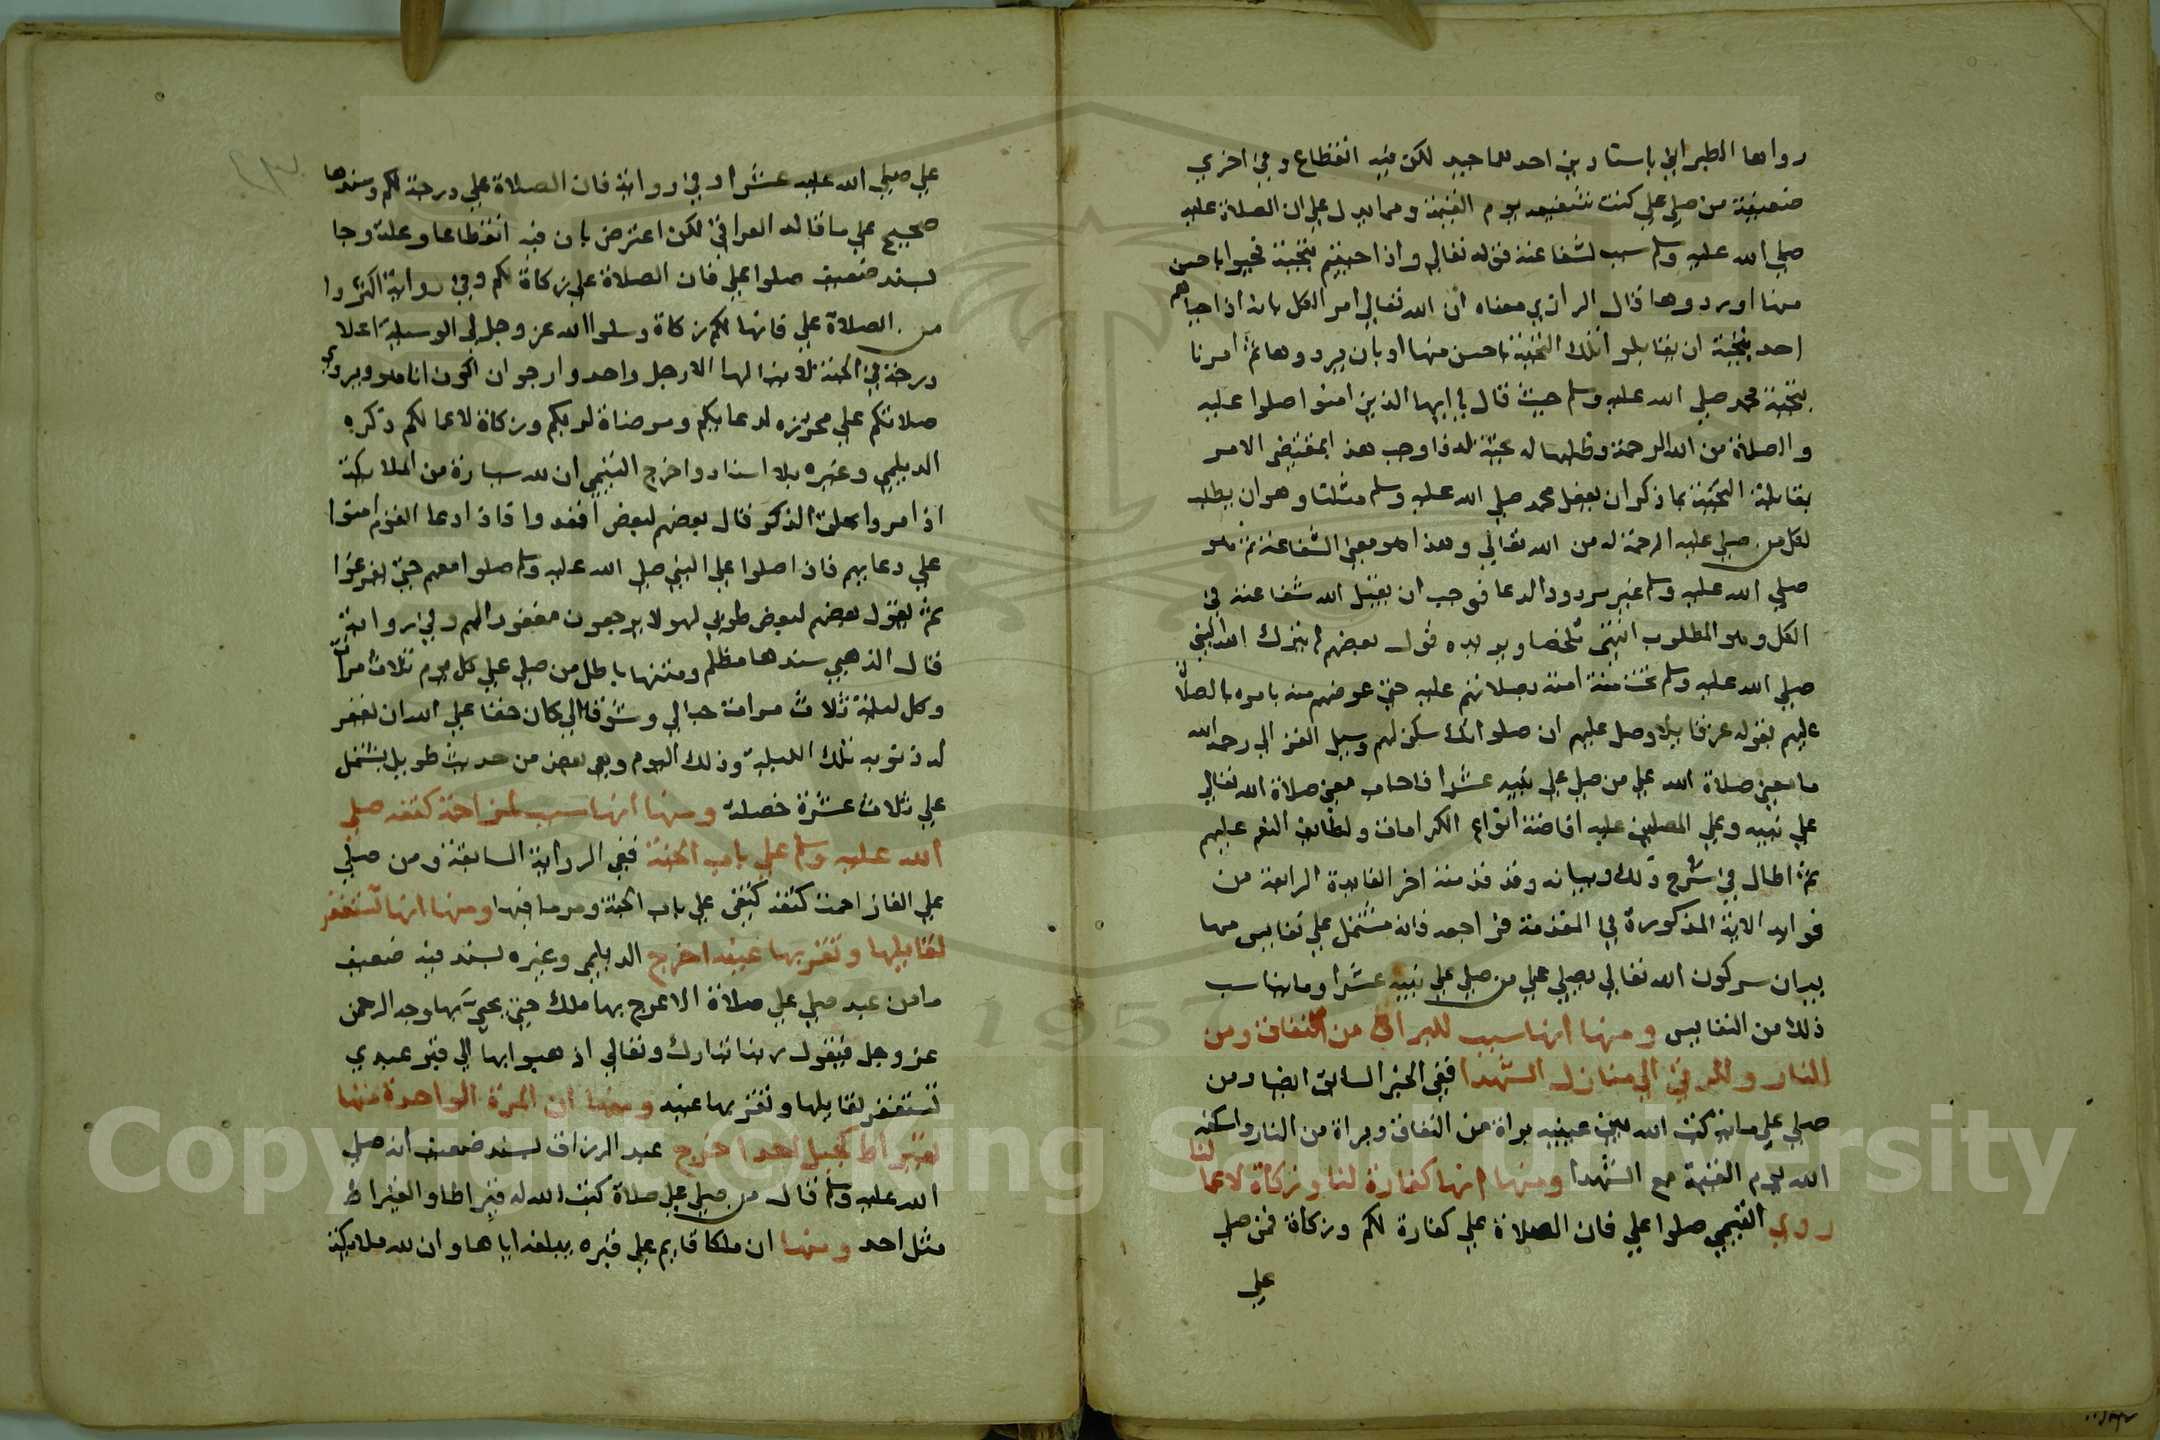 رواها الطبراني باسنادين احدهما جيد لكن فيه انقطاع وفي اخري
ضعيفة من صلي علي كنت شفيعه يوم القيمة ومما يدل علي ان الصلاة عليه
صلي الله عليه وسلم سبب لشفاعته قوله تعالي واذا حييتم بتحية فحيوا باحسن
منها او ردوها قال الرازي معناه ان الله تعالي امر الكل بانه اذا حياهم
احد بتحية ان يقابلوا تلك التحية باحسن منها او بان يردوها ثم امرنا
بتحية محمد صلي الله عليه وسلم حيث قال يا ايها الذين امنوا صلوا عليه
والصلاة من الله الرحمة وطلبها له تحية له فاوجب هذا بمقتضي الامر
بمقابلة التحية بما ذكر ان يفعل محمد صلي الله عليه وسلم مثلنا وهو ان يطلب
لكل من صلي عليه الرحمة له من الله تعالي وهذا هو معني الشفاعة ثم هو
صلي الله عليه وسلم غير مردود الدعا فوجب ان يقبل الله شفاعته في
الكل وهو المطلوب انتهي ملخصا ويويده قول بعضهم لم يترك الله لنبي
صلي الله عليه وسلم تحت منة امته بصلاتهم عليه حتي عوضهم منه بامره بالصلاة
عليهم بقوله عز قايلا وصل عليهم ان صلواتك سكن لهم وسيل الغزالي رحمه الله
ما معني صلاة الله علي من صلي علي نبيه عشرا فاجاب معني صلاة الله تعالي
علي نبيه وعلي المصلين عليه افاضة انواع الكرامات ولطايف النعم عليهم
ثم اطال في شرح ذلك وبيانه وقد قدمته اخر الفايدة الرابعة من
فوايد الاية المذكورة في المقدمة فراجعه فانه مشتمل علي نفايس منها
بيان سر كون الله تعالي يصلي علي من صلي علي نبيه عشرا وما يناسب
ذلك من النفايس ومنها انها سبب للبراة من النفاق ومن
النار وللرقي الي منازل الشهدا ففي الخبر السابق ايضا ومن
صلي علي ماية كتب الله بين عينيه براة من النفاق وبراة من النار واسكنه
الله يوم القيمة مع الشهدا ومنها انها كفارة لنا وزكاة لاعمالنا
روي التيمي صلوا علي فان الصلاة علي كفارة لكم وزكاة فمن صلي
علي
علي صلي الله عليه عشرا وفي رواية فان الصلاة علي درجة لكم وسندها
صحيح علي ما قاله العراقي لكن اعترض بان فيه انقطاعا وعلة وجا
بسند ضعيف صلوا علي فان الصلاة علي زكاة لكم وفي رواية اكثروا
من الصلاة علي فانها لكم زكاة وسلوا الله عز وجل لي الوسيلة اعلا
درجة في الجنة لا ينالها الا رجل واحد وارجو ان اكون انا هو ويروي
صلاتكم علي محرزة لدعايكم ومرضاة لربكم وزكاة لاعمالكم ذكره
الديلمي وغيره بلا اسناد واخرج التيمي ان لله سيارة من الملايكة
اذا مروا بحلق الذكر قال بعضهم لبعض اقعدوا فاذا دعا القوم امنوا
علي دعايهم فاذا صلوا علي النبي صلي الله عليه وسلم صلوا معهم حتي يفرغوا
ثم يقول بعضهم لبعض طوبي لهولا يرجعون مغفورا لهم وفي رواية
قال الذهبي سندها مظلم ومتنها باطل من صلي علي كل يوم ثلاث مرات
وكل ليلة ثلاث مرات حبا لي وشوقا الي كان حقا علي الله ان يغفر
له ذنوبه تلك الليلة وذلك اليوم وهو بعض من حديث طويل يشتمل
علي ثلاث عشرة خصلة ومنها انها سبب لمزاحمة كتفه صلي
الله عليه وسلم علي باب الجنة ففي الرواية السابقة ومن صلي
علي الفا زاحمت كتفه كتفي علي باب الجنة ومر ما فيها ومنها انها تستغفر
لقايلها وتقر بها عينه اخرج الديلمي وغيره بسند فيه ضعيف
ما من عبد صلي علي صلاة الا عرج بها ملك حتي يحيي بها وجه الرحمن
عز وجل فيقول ربنا تبارك وتعالي اذهبوا بها الي قبر عبدي
تستغفر لقايلها وتقر بها عينه ومنها ان المرة الواحدة منها
بقيراط كجبل احد اخرج عبد الرزاق بسند ضعيف انه صلي
الله عليه وسلم قال من صلي علي صلاة كتب الله له قيراطا والقيراط
مثل احد ومنها ان ملكا قايم علي قبره يبلغه اياها وان لله ملايكة
Copyright © King Saud University
1957